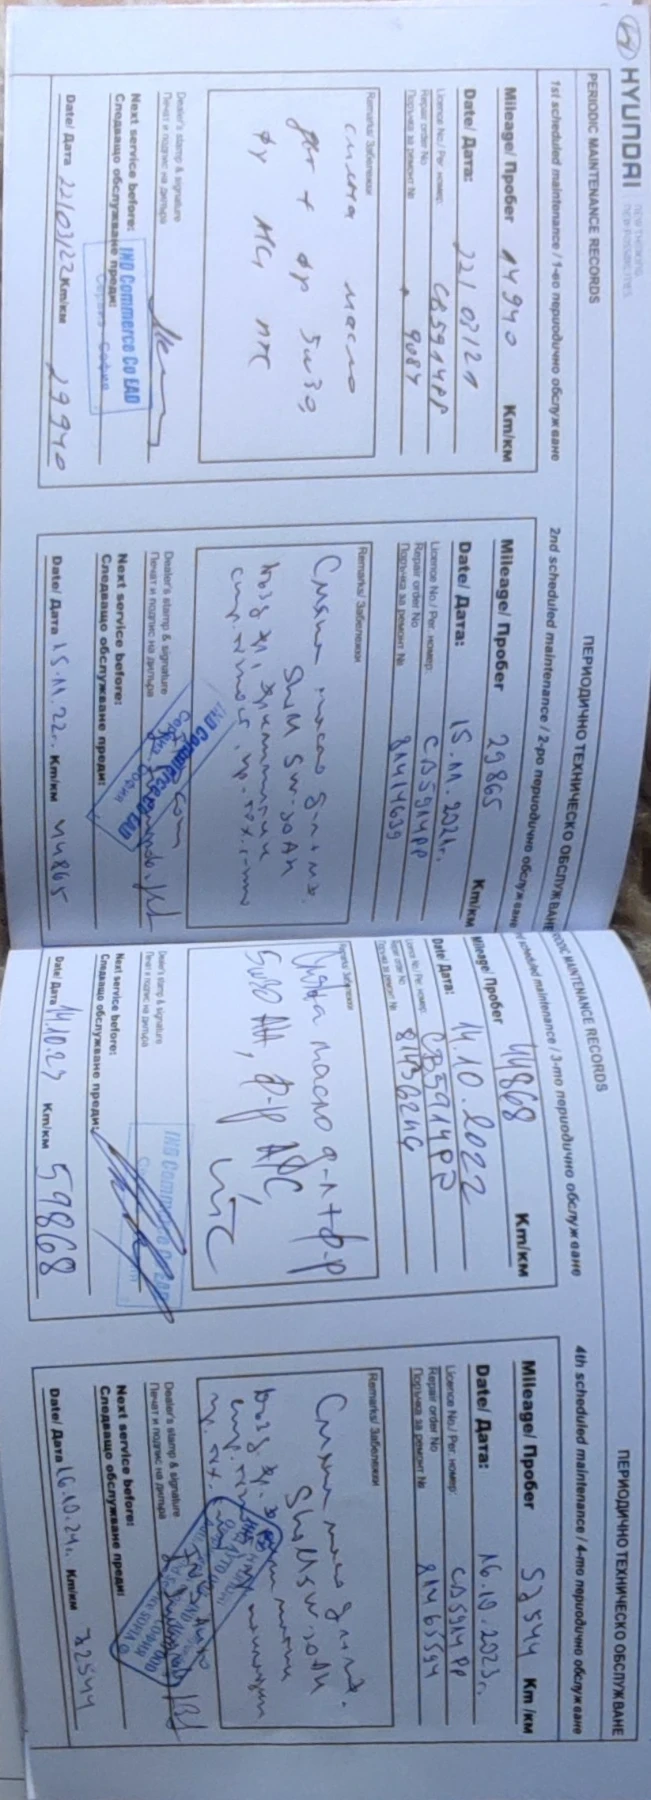 HYUNDAI
NEW THINKING.
NEW POSSIBILITIES.
PERIODIC MAINTENANCE RECORDS
ПЕРИОДИЧНО ТЕХНИЧЕСКО ОБСЛУЖВАНЕ
1st scheduled maintenance / 1-во периодично обслужване
Mileage/ Пробег 14940 Km/км
Date/ Дата: 22/03/21
Licence No./ Рег. номер: CB5914PP
Repair order No
Поръчка за ремонт № 9087
Remarks/ Забележки
смяна масло
5w30
Dealer's stamp & signature
Печат и подпис на дилъра
IND Commerce Co EAD
Сервиз София
Next service before:
Следващо обслужване преди:
Date/ Дата 22/03/22 Km/км 29940
2nd scheduled maintenance / 2-ро периодично обслужване
Mileage/ Пробег 29865 Km/км
Date/ Дата: 15.11.2021г.
Licence No./ Рег. номер: CB5914PP
Repair order No
Поръчка за ремонт № 81414639
Remarks/ Забележки
Смяна масло
Shell 5w-30
Dealer's stamp & signature
Печат и подпис на дилъра
Next service before:
Следващо обслужване преди:
Date/ Дата 15.11.22г. Km/км 44865
PERIODIC MAINTENANCE RECORDS
ПЕРИОДИЧНО ТЕХНИЧЕСКО ОБСЛУЖВАНЕ
scheduled maintenance / 3-то периодично обслужване
Mileage/ Пробег 44868 Km/км
Date/ Дата: 14.10.2022
Licence No./ Рег. номер: CB5914PP
Repair order No
Поръчка за ремонт №
Remarks/ Забележки
Смяна масло д-л+ф-р
5w30 ф-р
Dealer's stamp & signature
Печат и подпис на дилъра
IND Commerce Co EAD
Next service before:
Следващо обслужване преди:
Date/ Дата 14.10.23 Km/км 59868
4th scheduled maintenance / 4-то периодично обслужване
Mileage/ Пробег 57544 Km/км
Date/ Дата: 16.10.2023г.
Licence No./ Рег. номер: CB5914PP
Repair order No
Поръчка за ремонт № 81463594
Remarks/ Забележки
Смяна масло
Shell 5w-30
Dealer's stamp & signature
Печат и подпис на дилъра
Next service before:
Следващо обслужване преди:
Date/ Дата 16.10.24г. Km/км 72544